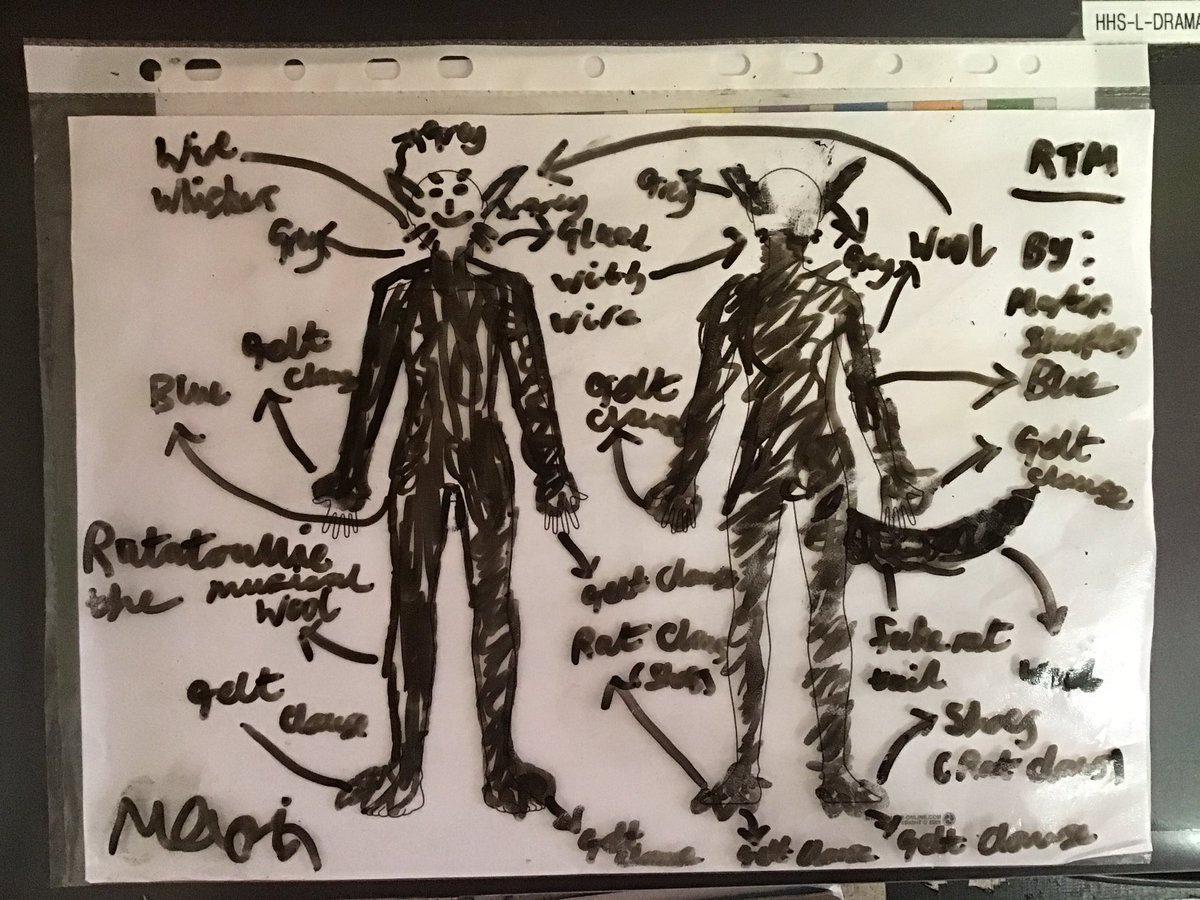 HHS-L-DRAMA
RTM
By:
Grey
Wire
Whisker
Grey
Grey
Glued
with
wire
Grey
Grey
Wool
Blue
Gelt
Clause
Blue
Gelt
Clause
Gelt
Clause
Ratatoullie
the musical
Wool
Gelt Clause
Rat Claus
(Shoes
Fake rat
tail
Wool
Gelt
Clause
Shoes
(Rat claus)
Gelt
Clause
Gelt Clause
Gelt Clause